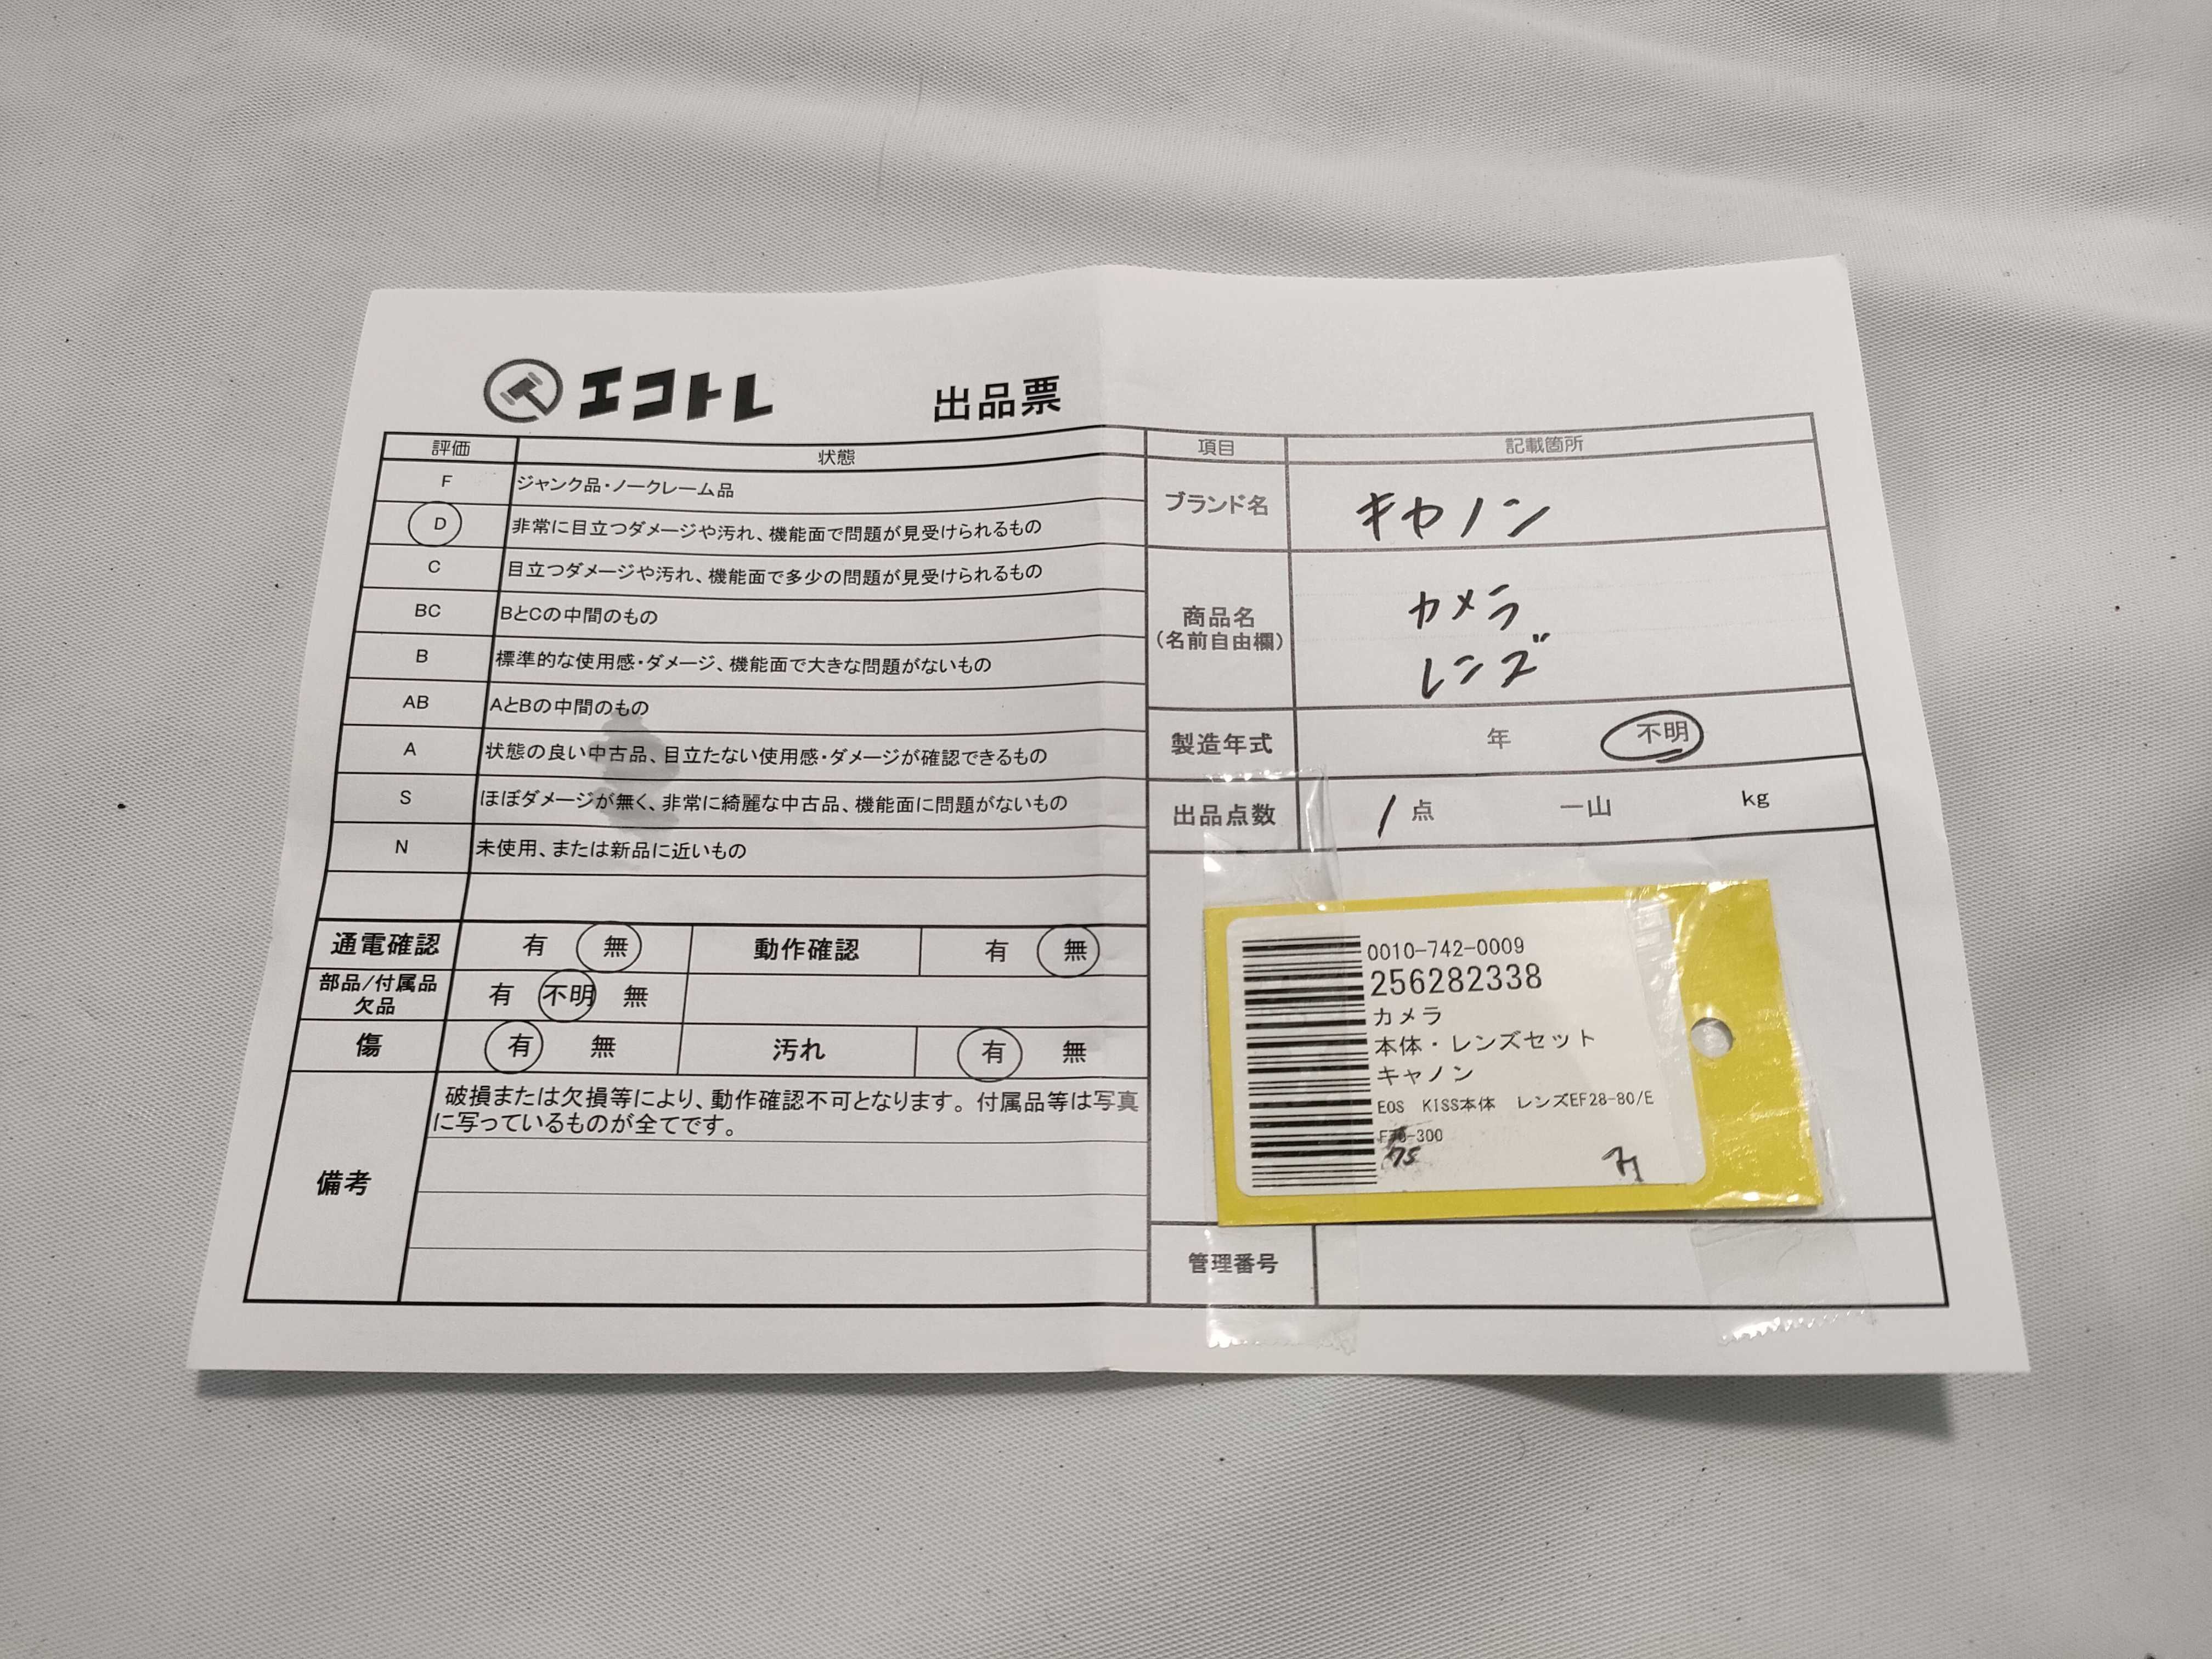 エコトレ 出品票
評価 状態
F ジャンク品・ノークレーム品
D 非常に目立つダメージや汚れ、機能面で問題が見受けられるもの
C 目立つダメージや汚れ、機能面で多少の問題が見受けられるもの
BC BとCの中間のもの
B 標準的な使用感・ダメージ、機能面で大きな問題がないもの
AB AとBの中間のもの
A 状態の良い中古品、目立たない使用感・ダメージが確認できるもの
S ほぼダメージが無く、非常に綺麗な中古品、機能面に問題がないもの
N 未使用、または新品に近いもの
通電確認 有 無 動作確認 有 無
部品/付属品
欠品 有 不明 無
傷 有 無 汚れ 有 無
備考 破損または欠損等により、動作確認不可となります。付属品等は写真
に写っているものが全てです。
項目 記載箇所
ブランド名 キヤノン
商品名
(名前自由欄)
カメラ
レンズ
製造年式 年 不明
出品点数 1 点 一山 kg
0010-742-0009
256282338
カメラ
本体・レンズセット
キャノン
EOS KISS本体 レンズEF28-80/E
-300
75
管理番号